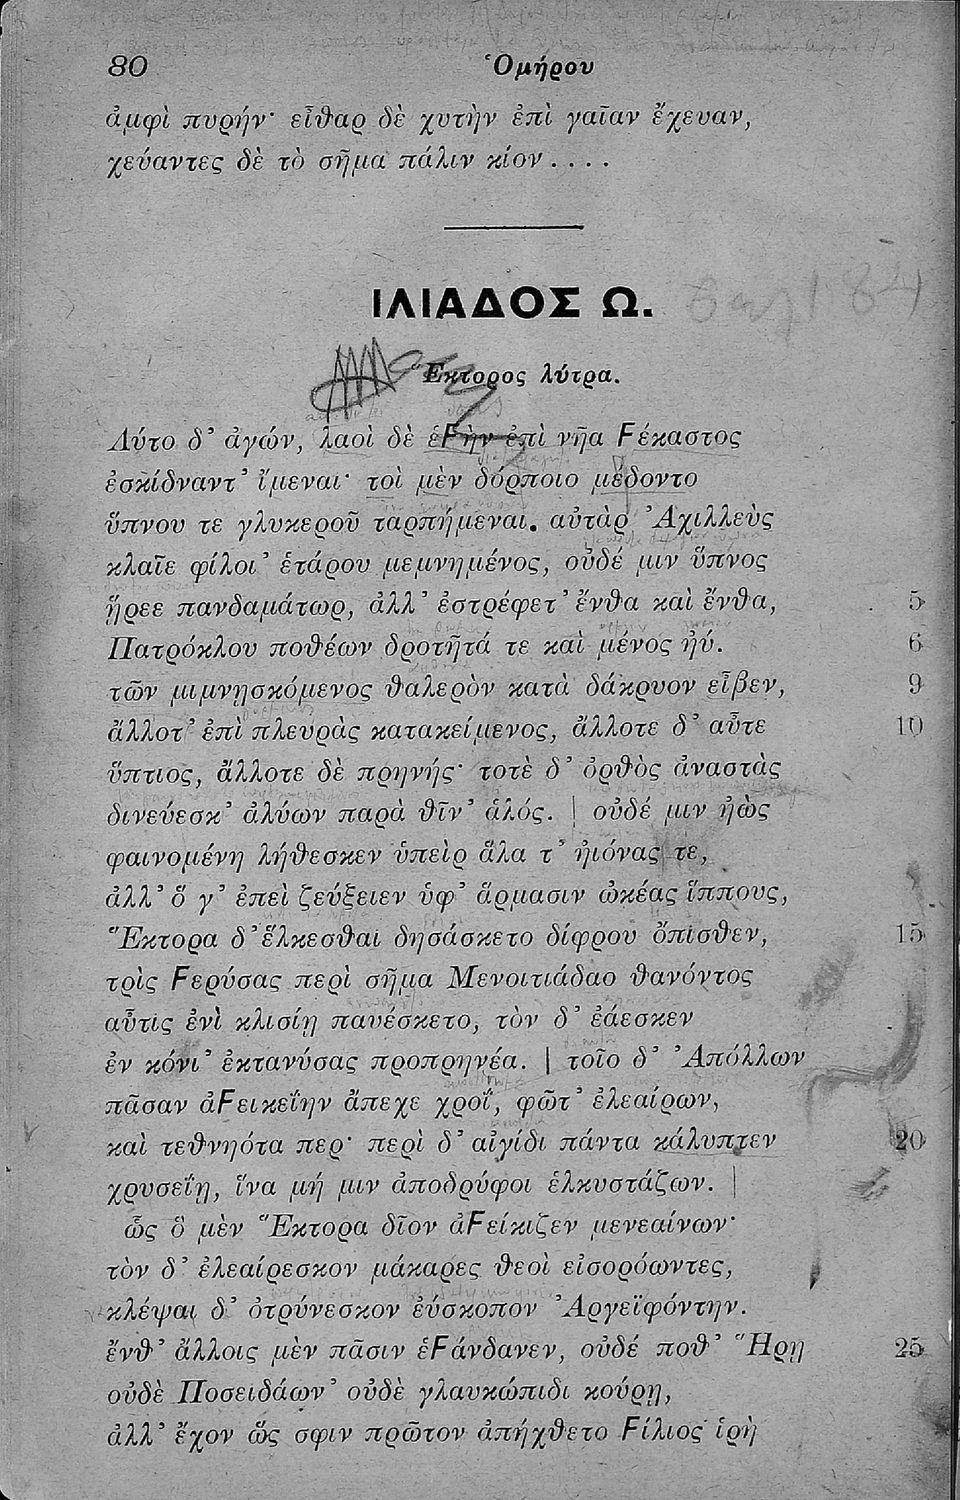 80 Ὁμήρου
ἀμφὶ πυρήν· εἶθαρ δὲ χυτὴν ἐπὶ γαῖαν ἔχευαν,
χεύαντες δὲ τὸ σῆμα πάλιν κίον ....
ΙΛΙΑΔΟΣ Ω.
Ἕκτορος λύτρα.
Λύτο δ' ἀγών, λαοὶ δὲ ἑϜὴν ἐπὶ νῆα Ϝέκαστος
ἐσκίδναντ' ἴμεναι· τοὶ μὲν δόρποιο μέδοντο
ὕπνου τε γλυκεροῦ ταρπήμεναι. αὐτὰρ Ἀχιλλεὺς
κλαῖε φίλοι' ἑτάρου μεμνημένος, οὐδέ μιν ὕπνος
ᾕρεε πανδαμάτωρ, ἀλλ' ἐστρέφετ' ἔνθα καὶ ἔνθα, 5
Πατρόκλου ποθέων δροτῆτά τε καὶ μένος ἠύ. 6
τῶν μιμνησκόμενος θαλερὸν κατὰ δάκρυον εἶβεν, 9
ἄλλοτ' ἐπὶ πλευρὰς κατακείμενος, ἄλλοτε δ' αὖτε 10
ὕπτιος, ἄλλοτε δὲ πρηνής· τοτὲ δ' ὀρθὸς ἀναστὰς
δινεύεσκ' ἀλύων παρὰ θῖν' ἁλός. | οὐδέ μιν ἠὼς
φαινομένη λήθεσκεν ὑπεὶρ ἅλα τ' ἠιόνας τε,
ἀλλ' ὅ γ' ἐπεὶ ζεύξειεν ὑφ' ἅρμασιν ὠκέας ἵππους,
Ἕκτορα δ' ἕλκεσθαι δησάσκετο δίφρου ὄπισθεν, 15
τρὶς Ϝερύσας περὶ σῆμα Μενοιτιάδαο θανόντος
αὖτις ἐνὶ κλισίῃ παυέσκετο, τὸν δ' ἐάεσκεν
ἐν κόνι' ἐκτανύσας προπρηνέα. | τοῖο δ' Ἀπόλλων
πᾶσαν ἀϜεικεΐην ἄπεχε χροΐ, φῶτ' ἐλεαίρων,
καὶ τεθνηότα περ· περὶ δ' αἰγίδι πάντα κάλυπτεν 20
χρυσεΐῃ, ἵνα μή μιν ἀποδρύφοι ἑλκυστάζων. |
ὣς ὃ μὲν Ἕκτορα δῖον ἀϜείκιζεν μενεαίνων·
τὸν δ' ἐλεαίρεσκον μάκαρες θεοὶ εἰσορόωντες,
κλέψαι δ' ὀτρύνεσκον ἐύσκοπον Ἀργεϊφόντην.
ἔνθ' ἄλλοις μὲν πᾶσιν ἑϜάνδανεν, οὐδέ ποθ' Ἥρῃ 25
οὐδὲ Ποσειδάων' οὐδὲ γλαυκώπιδι κούρῃ,
ἀλλ' ἔχον ὥς σφιν πρῶτον ἀπήχθετο Ϝίλιος ἱρὴ